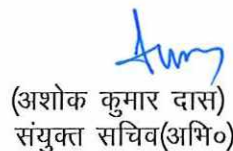 (अशोक कुमार दास)
संयुक्त सचिव(अभि०)